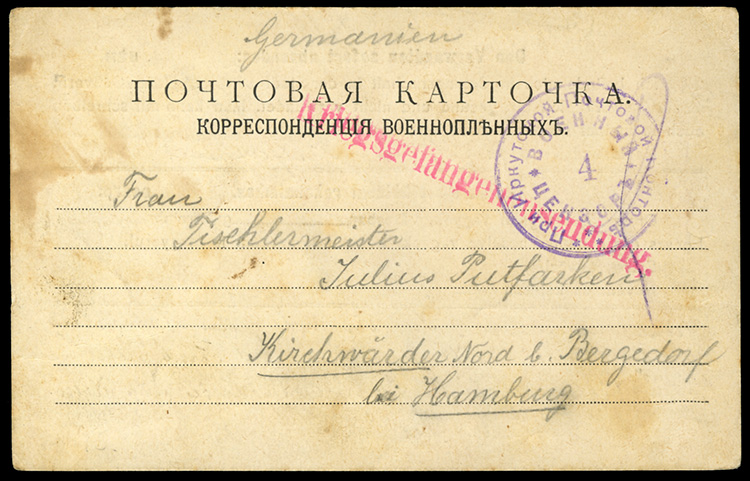 Germanien
ПОЧТОВАЯ КАРТОЧКА.
КОРРЕСПОНДЕНЦІЯ ВОЕННОПЛѢННЫХЪ.
Kriegsgefangenensendung.
При Иркутской Почтовой Конторѣ
ВОЕННЫЙ
4
ЦЕНЗОРЪ
Frau
Tischlermeister
Julius Putfarken
Kirchwärder Nord b. Bergedorf
bei Hamburg